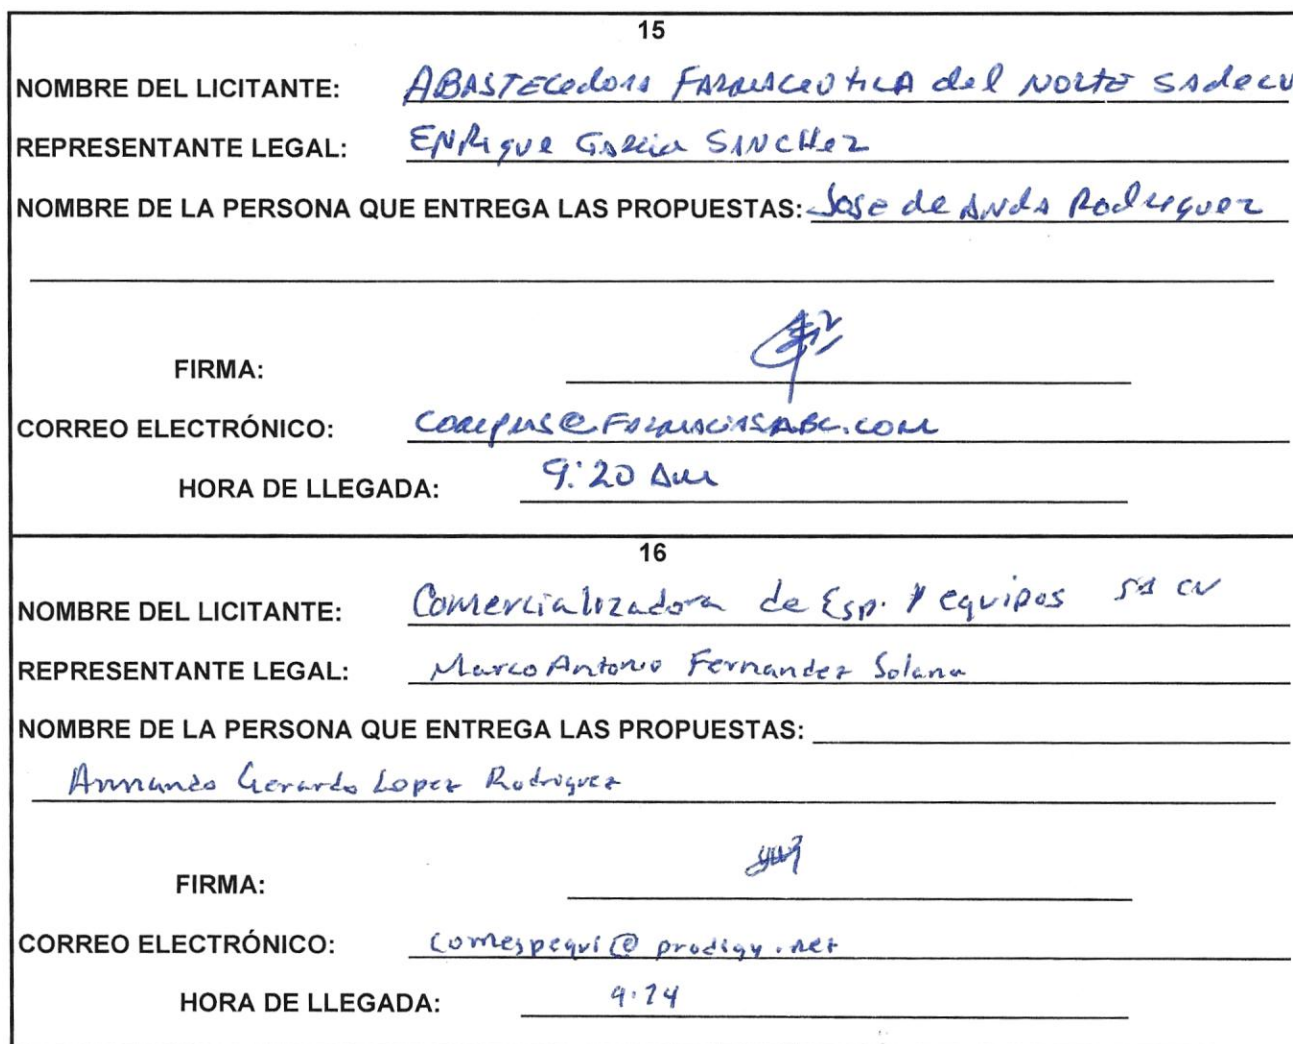 15
NOMBRE DEL LICITANTE: ABASTECedora FARMACEUtICA del NORTE SAdeCV
REPRESENTANTE LEGAL: ENRique García SANCHez
NOMBRE DE LA PERSONA QUE ENTREGA LAS PROPUESTAS: Jose de ANda Rodriguez
FIRMA:
CORREO ELECTRÓNICO: compras@FarmaciasABC.com
HORA DE LLEGADA: 9:20 Am
16
NOMBRE DEL LICITANTE: Comercializadora de Esp. y equipos SA CV
REPRESENTANTE LEGAL: Marco Antonio Fernandez Solana
NOMBRE DE LA PERSONA QUE ENTREGA LAS PROPUESTAS:
Armando Gerardo Lopez Rodriguez
FIRMA:
CORREO ELECTRÓNICO: comespequi@prodigy.net
HORA DE LLEGADA: 9:24